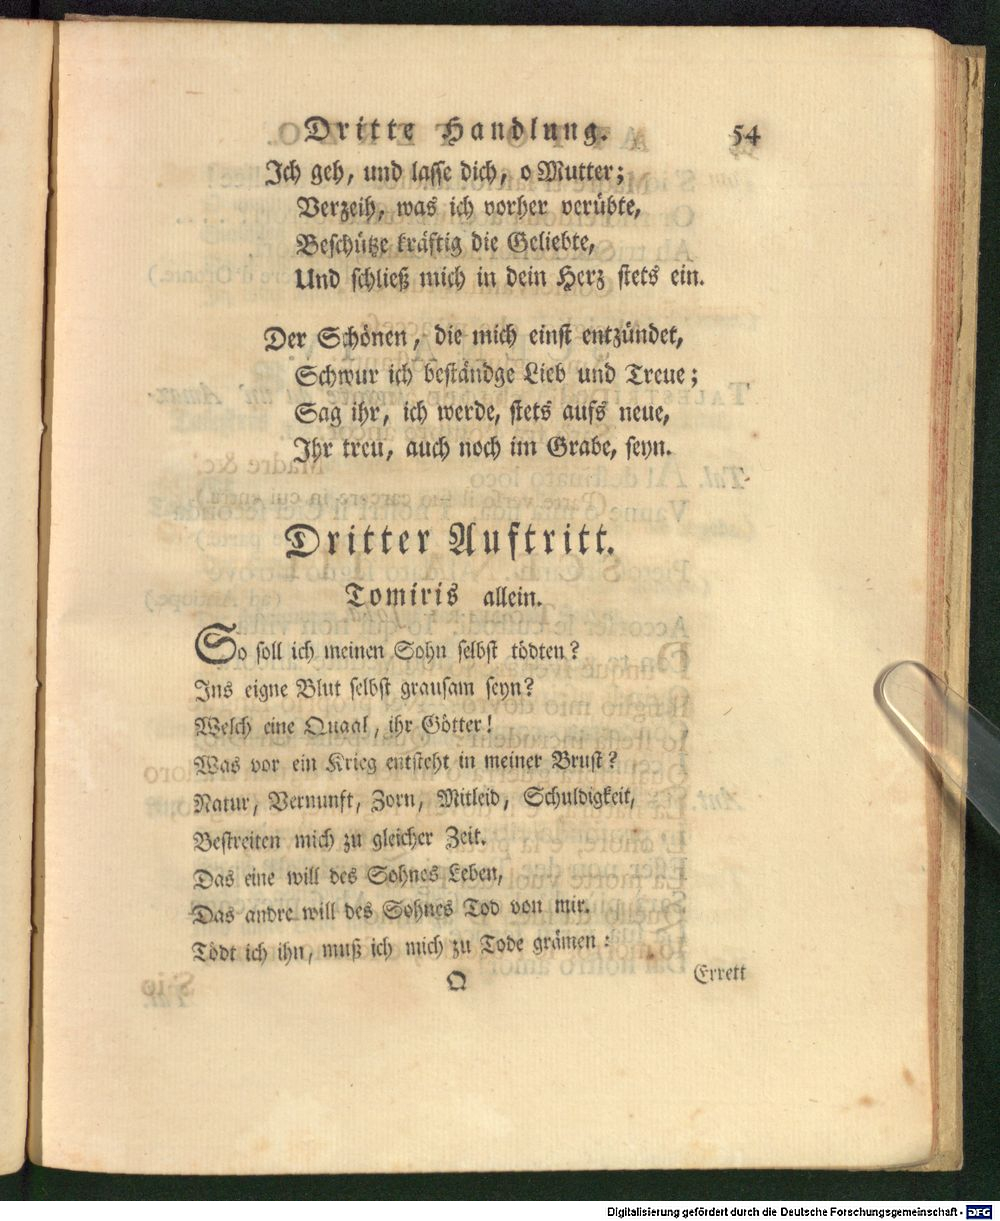 Dritte Handlung. 54
Ich geh, und lasse dich, o Mutter;
Verzeih, was ich vorher verübte,
Beschütze kräftig die Geliebte,
Und schließ mich in dein Herz stets ein.
Der Schönen, die mich einst entzündet,
Schwur ich beständge Lieb und Treue;
Sag ihr, ich werde, stets aufs neue,
Ihr treu, auch noch im Grabe, seyn.
Dritter Auftritt.
Tomiris allein.
So soll ich meinen Sohn selbst tödten?
Ins eigne Blut selbst grausam seyn?
Welch eine Quaal, ihr Götter!
Was vor ein Krieg entsteht in meiner Brust?
Natur, Vernunft, Zorn, Mitleid, Schuldigkeit,
Bestreiten mich zu gleicher Zeit.
Das eine will des Sohnes Leben,
Das andre will des Sohnes Tod von mir.
Tödt ich ihn, muß ich mich zu Tode grämen:
O Errett
Digitalisierung gefördert durch die Deutsche Forschungsgemeinschaft - DFG